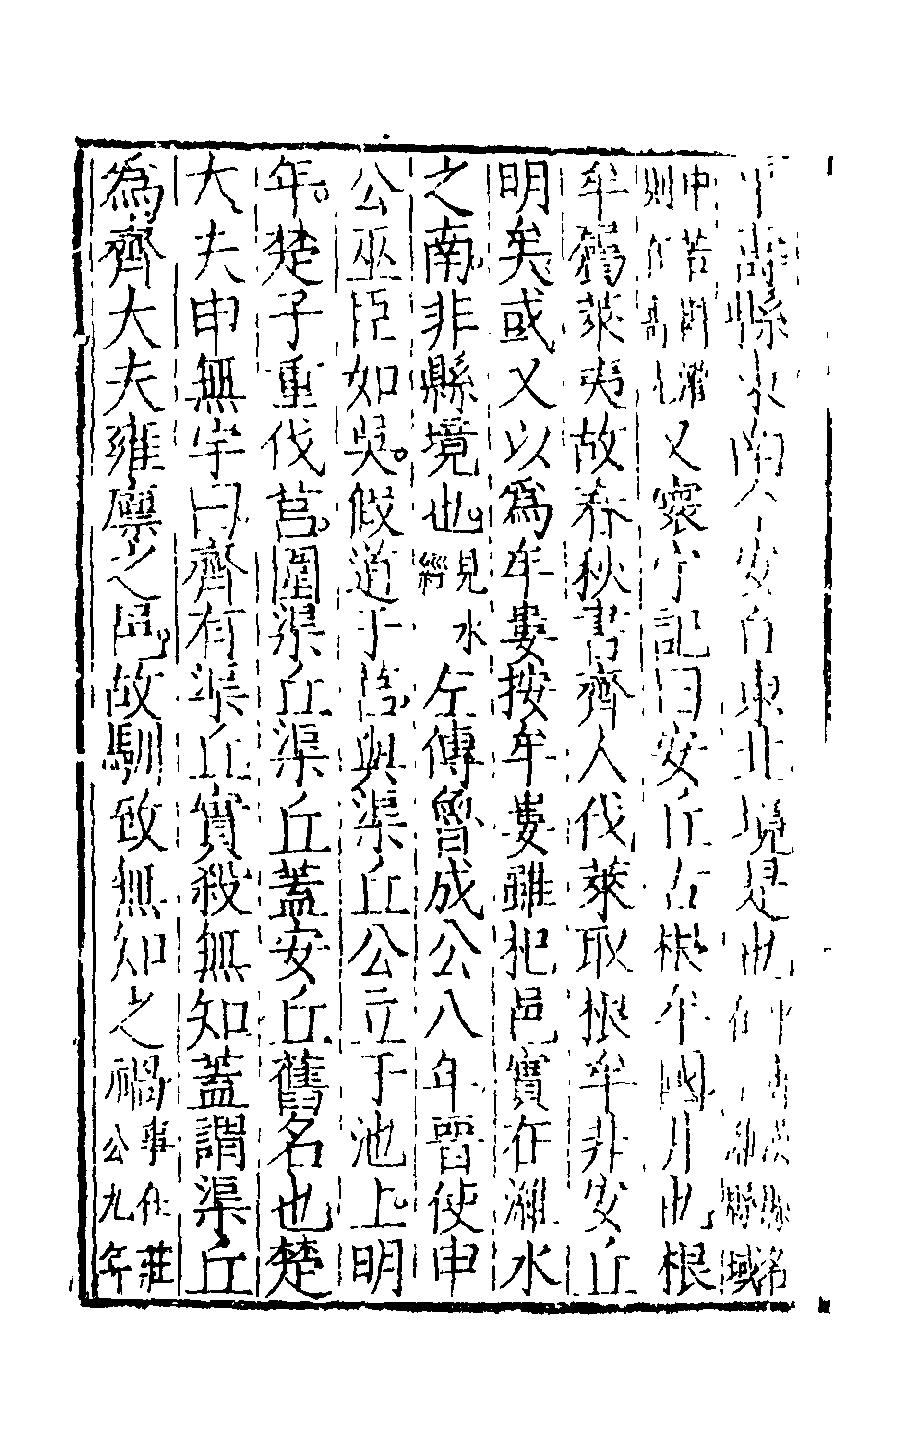 縣東南今安丘東北境是也
中若斟灌則在壽光又寰宇記曰安丘古根牟國非也根
牟萊夷故春秋書齊人伐萊取根牟非安丘
明矣或又以爲牟婁按牟婁雖杞邑實在濰水
之南非縣境也見水經左傳魯成公八年晉使申
公巫臣如吳假道于莒與渠丘公立于池上明
年楚子重伐莒圍渠丘渠丘蓋安丘舊名也楚
大夫申無宇曰齊有渠丘實殺無知蓋謂渠丘
爲齊大夫雍廩之邑故馴致無知之禍事在莊公九年